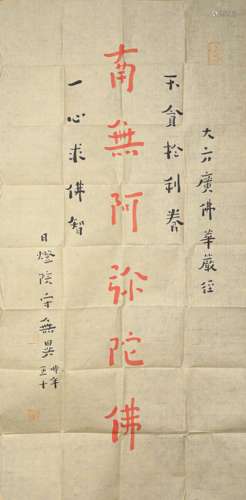 大方廣佛華嚴經
不貪於利养
南無阿弥陀佛
一心求佛智
日燈院
五十